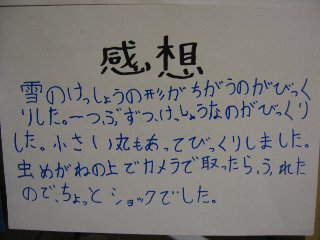 感想
雪のけっしょうの形がちがうのがびっく
りした。一つぶずつ、けっしょうなのがびっくり
した。小さい丸もあってびっくりしました。
虫めがねの上でカメラで取ったら、ふれた
ので、ちょっとショックでした。